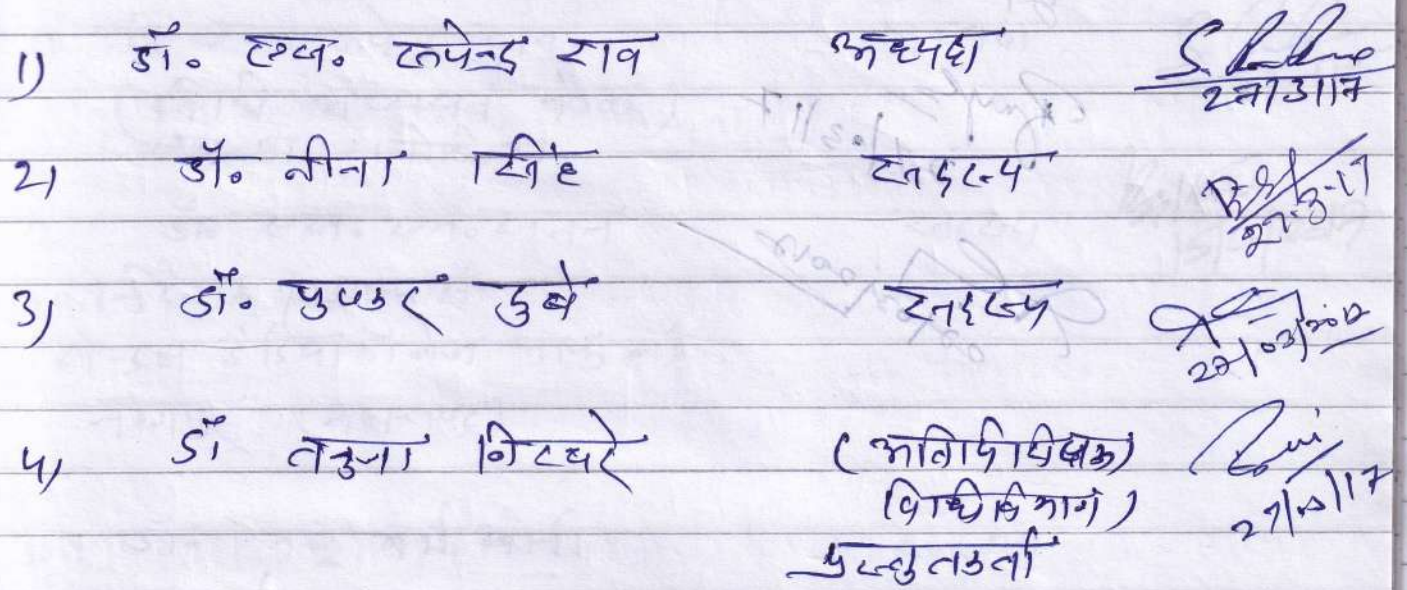 1) डॉ. एस. रूपेन्द्र राव अध्यक्ष
27/3/17
2) डॉ. नीना सिंह सदस्य
27-3-17
3) डॉ. पुष्कर दुबे सदस्य
27/03/2017
4) डॉ तनुजा (अतिथि शिक्षक)
विधि विभाग)
27/3/17
प्रस्तुतकर्ता